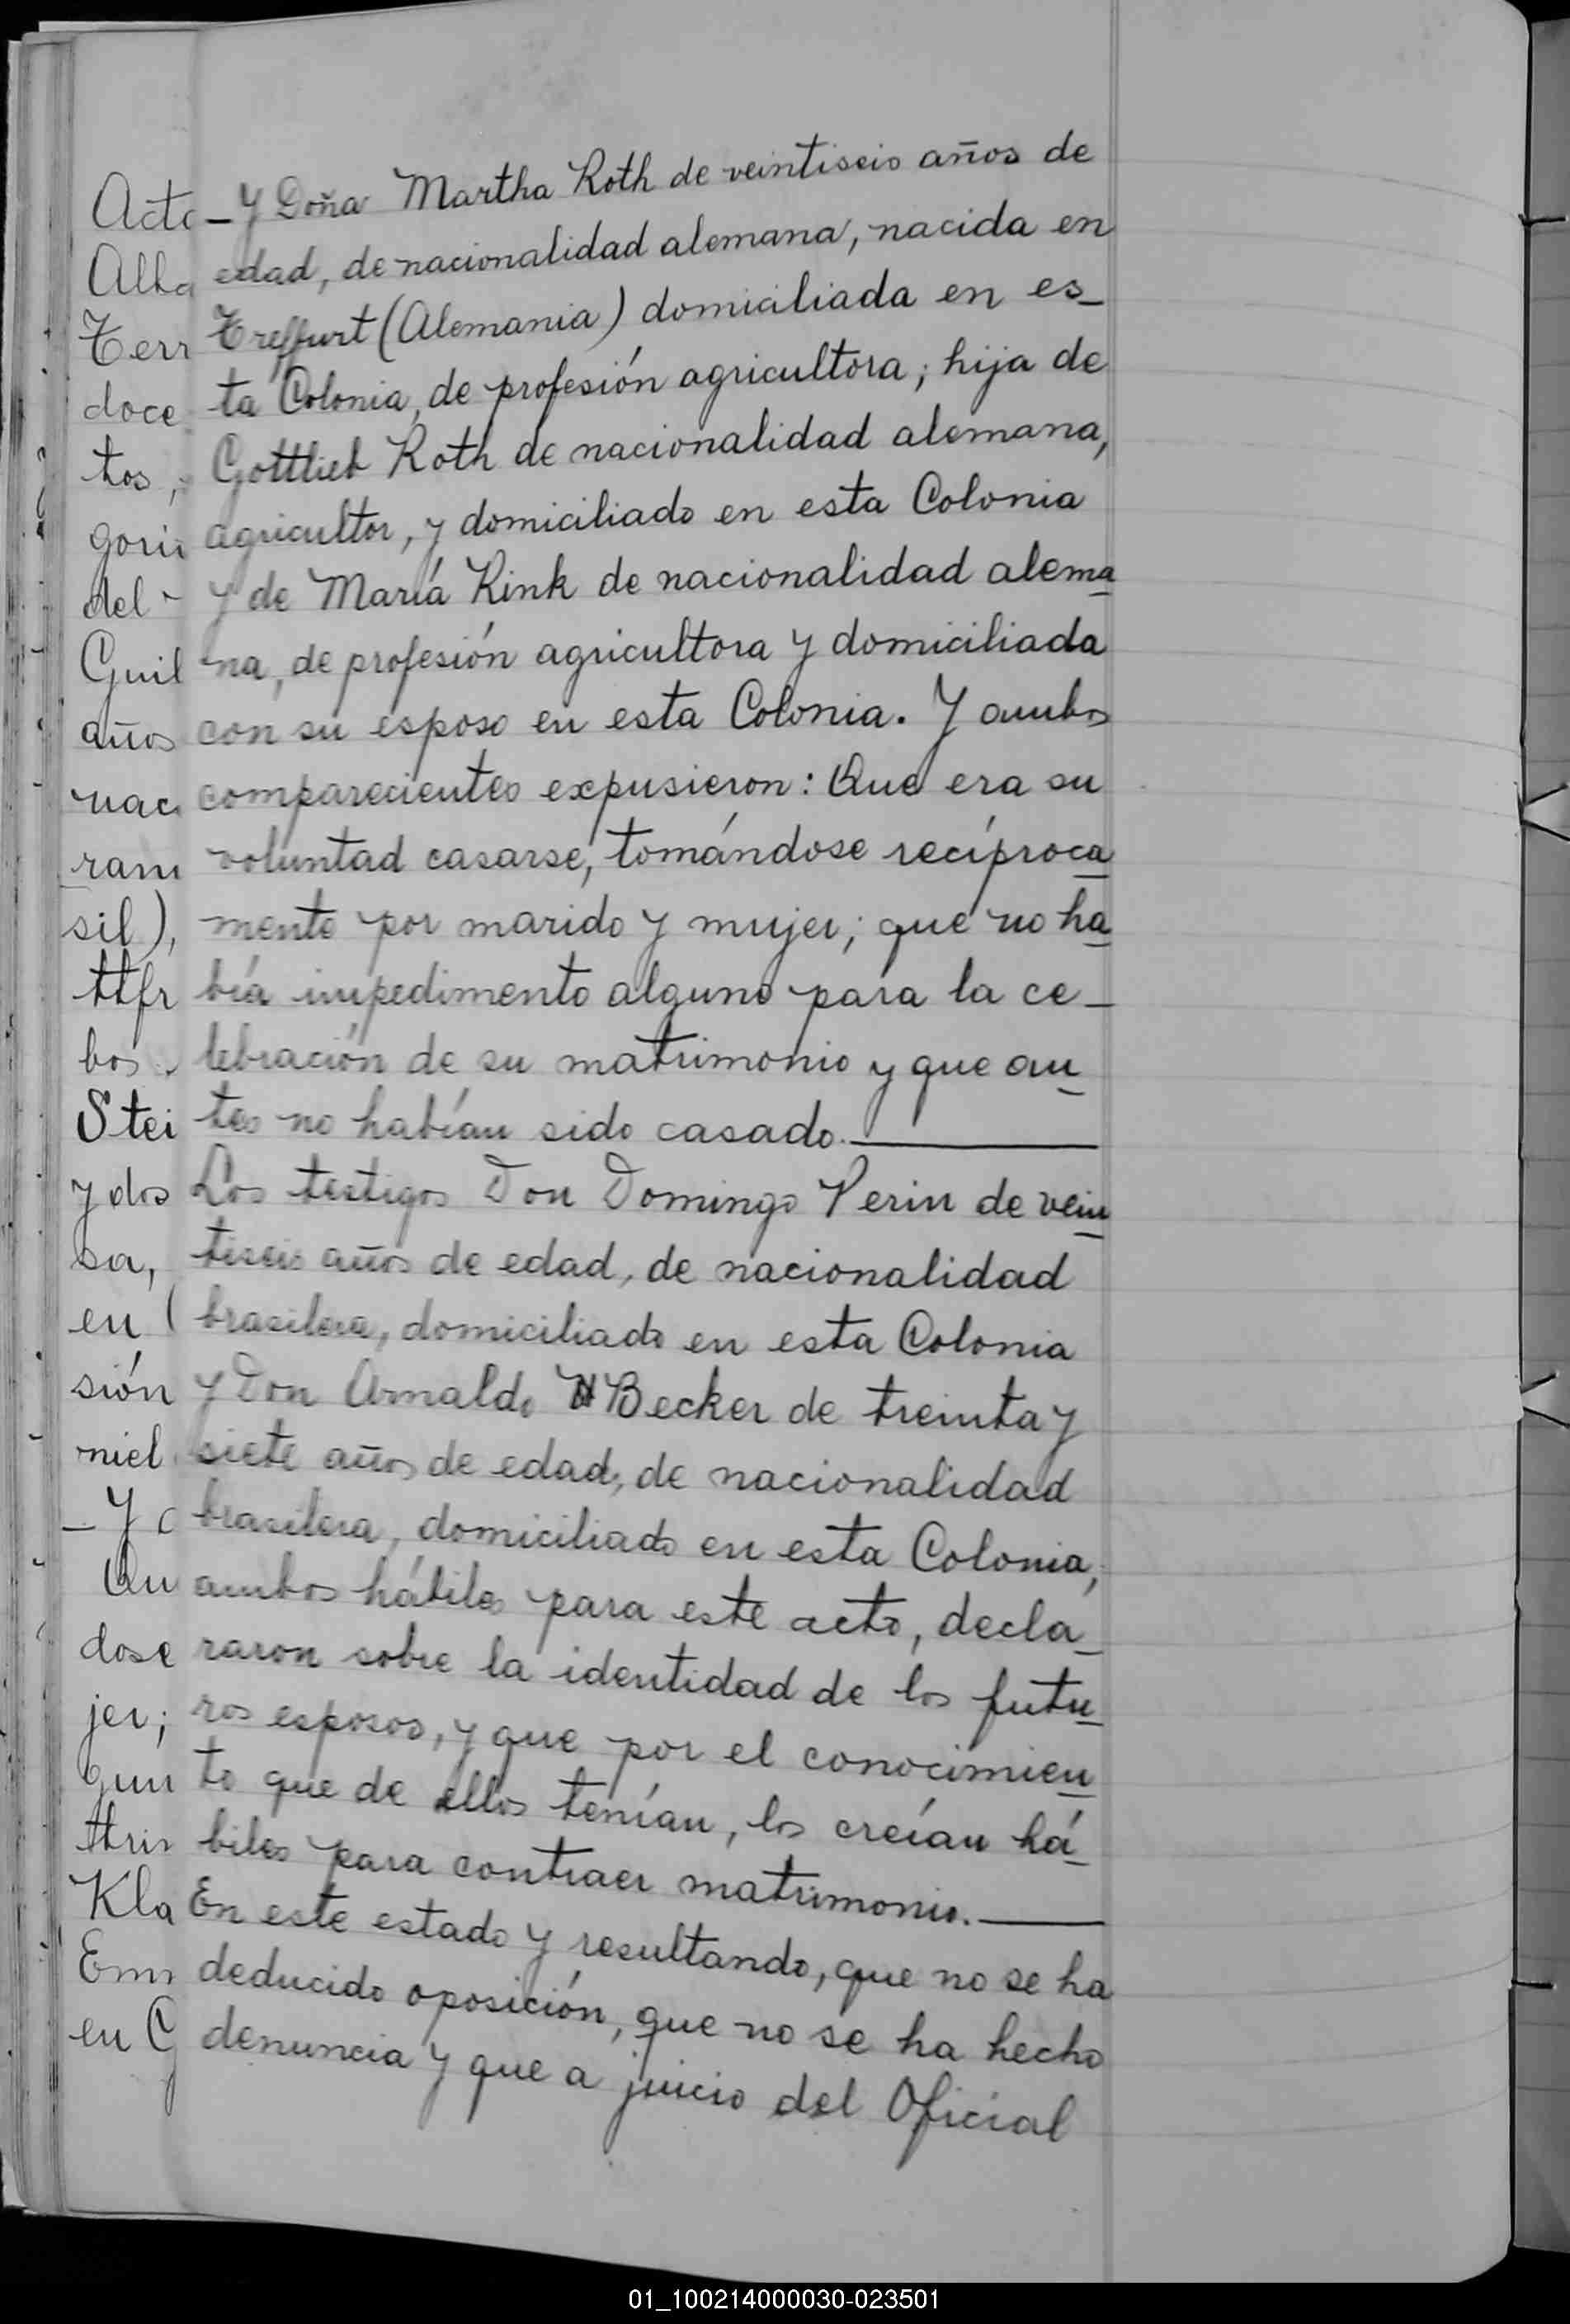 Y Doña Martha Roth de veintiseis años de
edad, de nacionalidad alemana, nacida en
Treffurt (Alemania) domiciliada en es_
ta Colonia, de profesión agricultora; hija de
Gottlieb Roth de nacionalidad alemana,
agricultor, y domiciliado en esta Colonia
y de María Rink de nacionalidad alema
na, de profesión agricultora y domiciliada
con su esposo en esta Colonia. Y ambos
comparecientes expusieron: Que era su
voluntad casarse, tomándose recíproca
mente por marido y mujer; que no ha
bía impedimento alguno para la ce_
lebración de su matrimonio y que an
tes no habían sido casado.
Los testigos Don Domingo Perin de vein
tiseis años de edad, de nacionalidad
brasilera, domiciliado en esta Colonia
y Don Arnaldo Becker de treinta y
siete años de edad, de nacionalidad
brasilera, domiciliado en esta Colonia,
ambos hábiles para este acto, decla_
raron sobre la identidad de los futu
ros esposos, y que por el conocimien
to que de ellos tenían, los creían há_
biles para contraer matrimonio.
En este estado y resultando, que no se ha
deducido oposición, que no se ha hecho
denuncia y que a juicio del Oficial
Acta
Alba
Terr
doce
tos,
gori
del
Guil
años
nac
ram
sil),
ttfr
bos
Stei
y dos
sa,
en (
sión
niel
_ Y c
Qu
dose
jer;
gun
ttrin
Kla
Em
en G
01_100214000030-023501